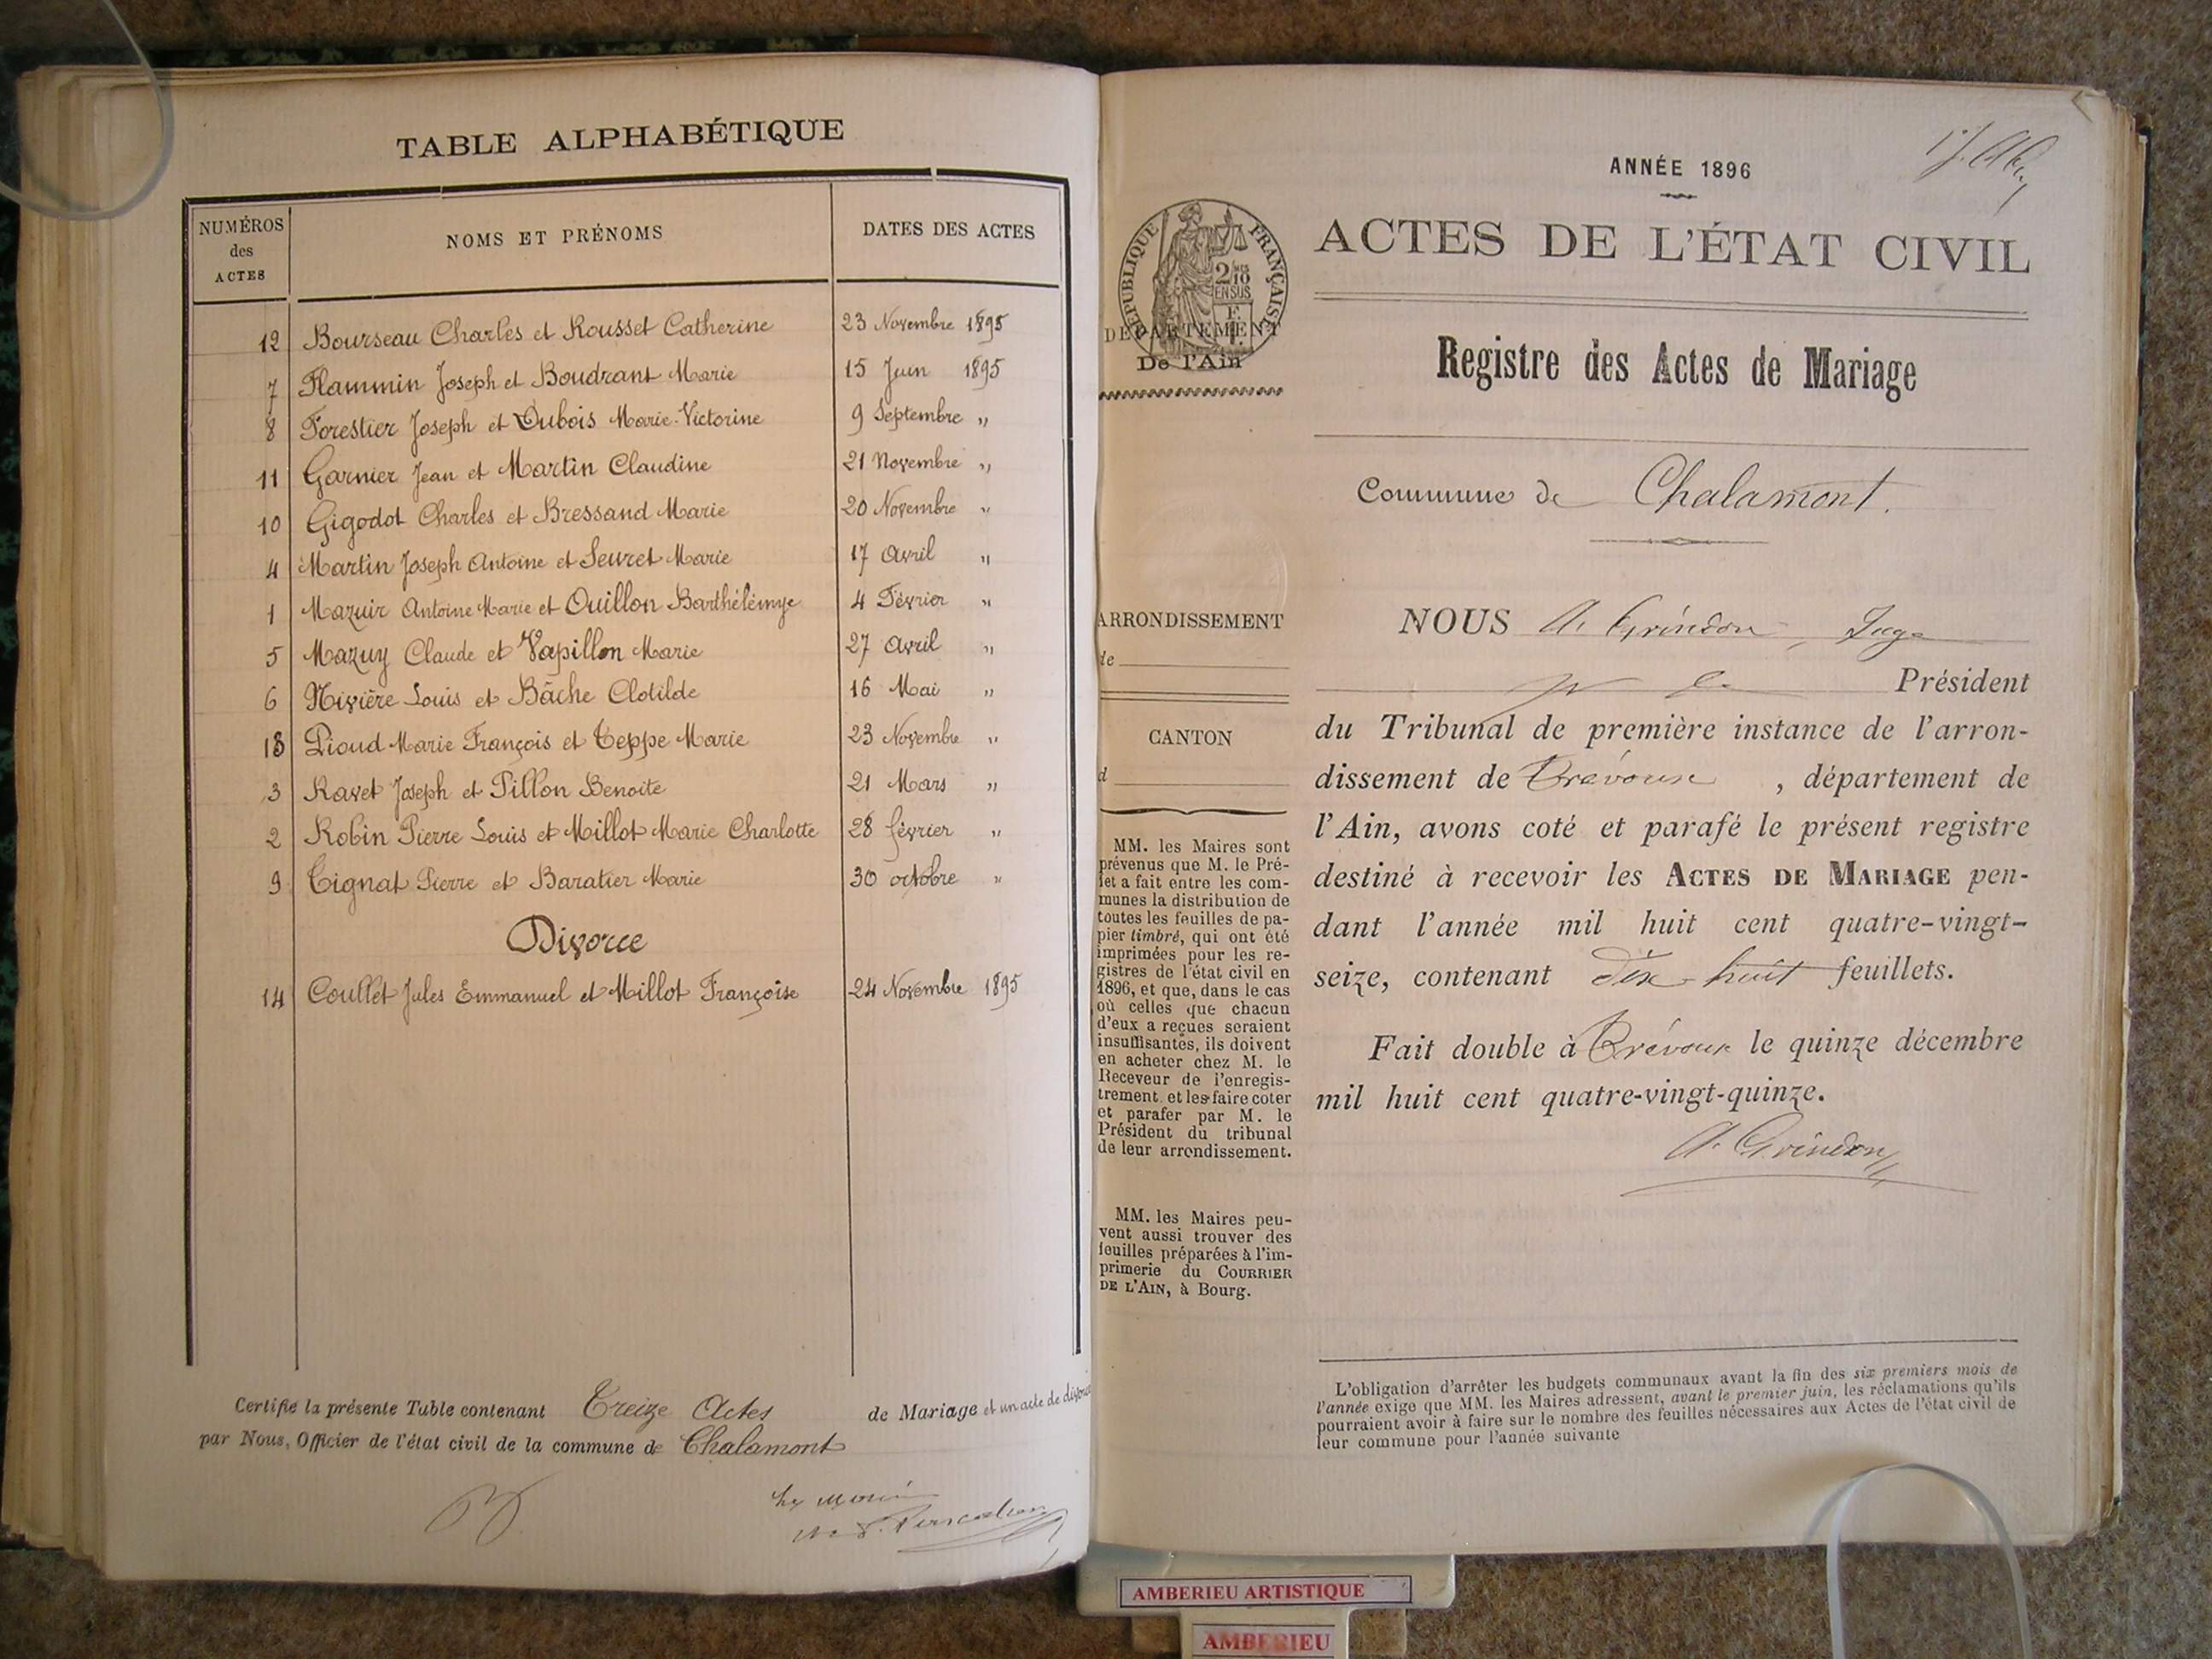 TABLE ALPHABÉTIQUE
NUMÉROS des ACTES
NOMS ET PRÉNOMS
DATES DES ACTES
12 Bourseau Charles et Rousset Catherine 23 Novembre 1895
7 Flammin Joseph et Boudrant Marie 15 Juin 1895
8 Forestier Joseph et Dubois Marie-Victorine 9 Septembre "
11 Garnier Jean et Martin Claudine 21 Novembre "
10 Gigodot Charles et Bressand Marie 20 Novembre "
4 Martin Joseph Antoine et Seuret Marie 17 Avril "
1 Mazuir Antoine Marie et Ouillon Barthélémye 4 Février "
5 Mazuy Claude et Vapillon Marie 27 Avril "
6 Nivière Louis et Bâche Clotilde 16 Mai "
13 Pioud Marie François et Teppe Marie 23 Novembre "
3 Ravet Joseph et Pillon Benoite 21 Mars "
2 Robin Pierre Louis et Millot Marie Charlotte 28 février "
9 Tignat Pierre et Baratier Marie 30 octobre "
Divorce
14 Coullet Jules Emmanuel et Millot Françoise 24 Novembre 1895
Certifié la présente Table contenant Treize Actes de Mariage et un acte de divorce
par Nous, Officier de l'état civil de la commune de Chalamont
ANNÉE 1896
ACTES DE L'ÉTAT CIVIL
RÉPUBLIQUE FRANÇAISE
DÉPARTEMENT
De l'Ain
Registre des Actes de Mariage
Commune de Chalamont.
ARRONDISSEMENT
de
CANTON
d
MM. les Maires sont
prévenus que M. le Pré-
fet a fait entre les com-
munes la distribution de
toutes les feuilles de pa-
pier timbré, qui ont été
imprimées pour les re-
gistres de l'état civil en
1896, et que, dans le cas
où celles que chacun
d'eux a reçues seraient
insuffisantes, ils doivent
en acheter chez M. le
Receveur de l'enregis-
trement et les faire coter
et parafer par M. le
Président du tribunal
de leur arrondissement.
MM. les Maires peu-
vent aussi trouver des
feuilles préparées à l'im-
primerie du COURRIER
DE L'AIN, à Bourg.
NOUS A. Grindon, Juge
Président
du Tribunal de première instance de l'arron-
dissement de Trévoux, département de
l'Ain, avons coté et parafé le présent registre
destiné à recevoir les ACTES DE MARIAGE pen-
dant l'année mil huit cent quatre-vingt-
seize, contenant dix-huit feuillets.
Fait double à Trévoux le quinze décembre
mil huit cent quatre-vingt-quinze.
A. Grindon
L'obligation d'arrêter les budgets communaux avant la fin des six premiers mois de
l'année exige que MM. les Maires adressent, avant le premier juin, les réclamations qu'ils
pourraient avoir à faire sur le nombre des feuilles nécessaires aux Actes de l'état civil de
leur commune pour l'année suivante
AMBERIEU ARTISTIQUE
AMBERIEU